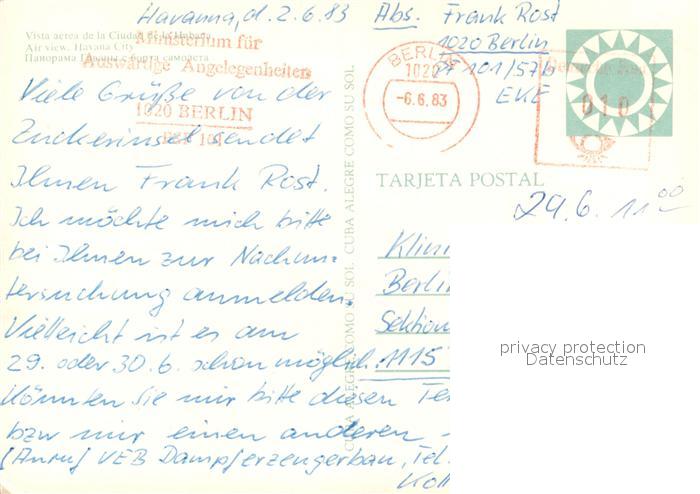 Havanna, d. 2.6.83
Vista aerea de la Ciudad de la Habana
Air view. Havana City
Панорама Гаваны с борта самолета
Ministerium für
Auswärtige Angelegenheiten
1020 BERLIN
Viele Grüße von der
Zuckerinsel sendet
Ihnen Frank Rost.
Ich möchte mich bitte
bei Ihnen zur Nachun-
tersuchung anmelden.
Vielleicht ist es am
29. oder 30.6. schon möglich.
Könnten Sie mir bitte diesen Te
bzw mir einen anderen
(Anruf VEB Dampferzeugerbau, Tel.
Koll
CUBA ALEGRE COMO SU SOL. CUBA ALEGRE COMO SU SOL.
Abs. Frank Rost
1020 Berlin
PF 101/57b
EKE
BERLIN
1020
-6.6.83
010
TARJETA POSTAL
29.6. 11 00
Klini
Berli
Sektion
1115
privacy protection
Datenschutz